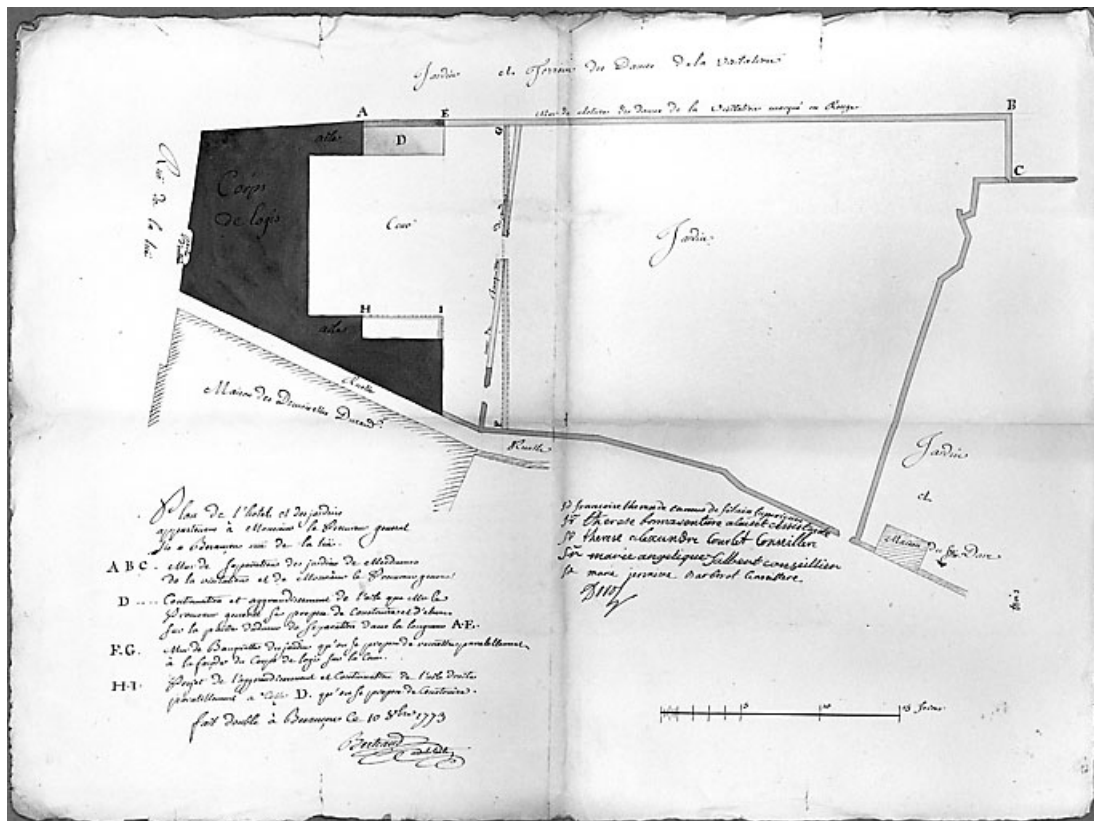 Jardin et Terrein des Dames de la Visitation
Mur de cloture des dames de la Visitation marqué en Rouge
A
E
B
C
aile
D
G
Corps
de logis
Rue de la
Cour
Jardin
H
I
aile
F
Ruelle
Maison des Demoiselles Durand
Ruelle
Jardin
et
Maison du Sr
Plan de l'hotel et des jardins
appartenans à Monsieur le Procureur general
à Besançon rue de la
A B C. Mur de Separation des jardins de Mesdames
de la visitation et de Monsieur le Procureur general
D Continuation et aggrandissement de l'aile que Mr le
Procureur general se propose de Construire et d'elever
sur la partie du mur de separation dans la longueur A.E.
F.G. Mur de des jardins qu'on se propose de remettre parallelement
à la façade du Corps de logis sur la Cour.
H-I. Projet de l'aggrandissement et Continuation de l'aile droite
parallelement a D. qu'on se propose de Construire.
fait double à Besançon Ce 10 8bre 1773
Bertrand
sr françoise therese de camus de superieure
Sr therese bonnaventure assistante
Sr therese alexandre Conseillere
Sr marie angelique conseilliere
Sr marie Conseillere
5
10
15